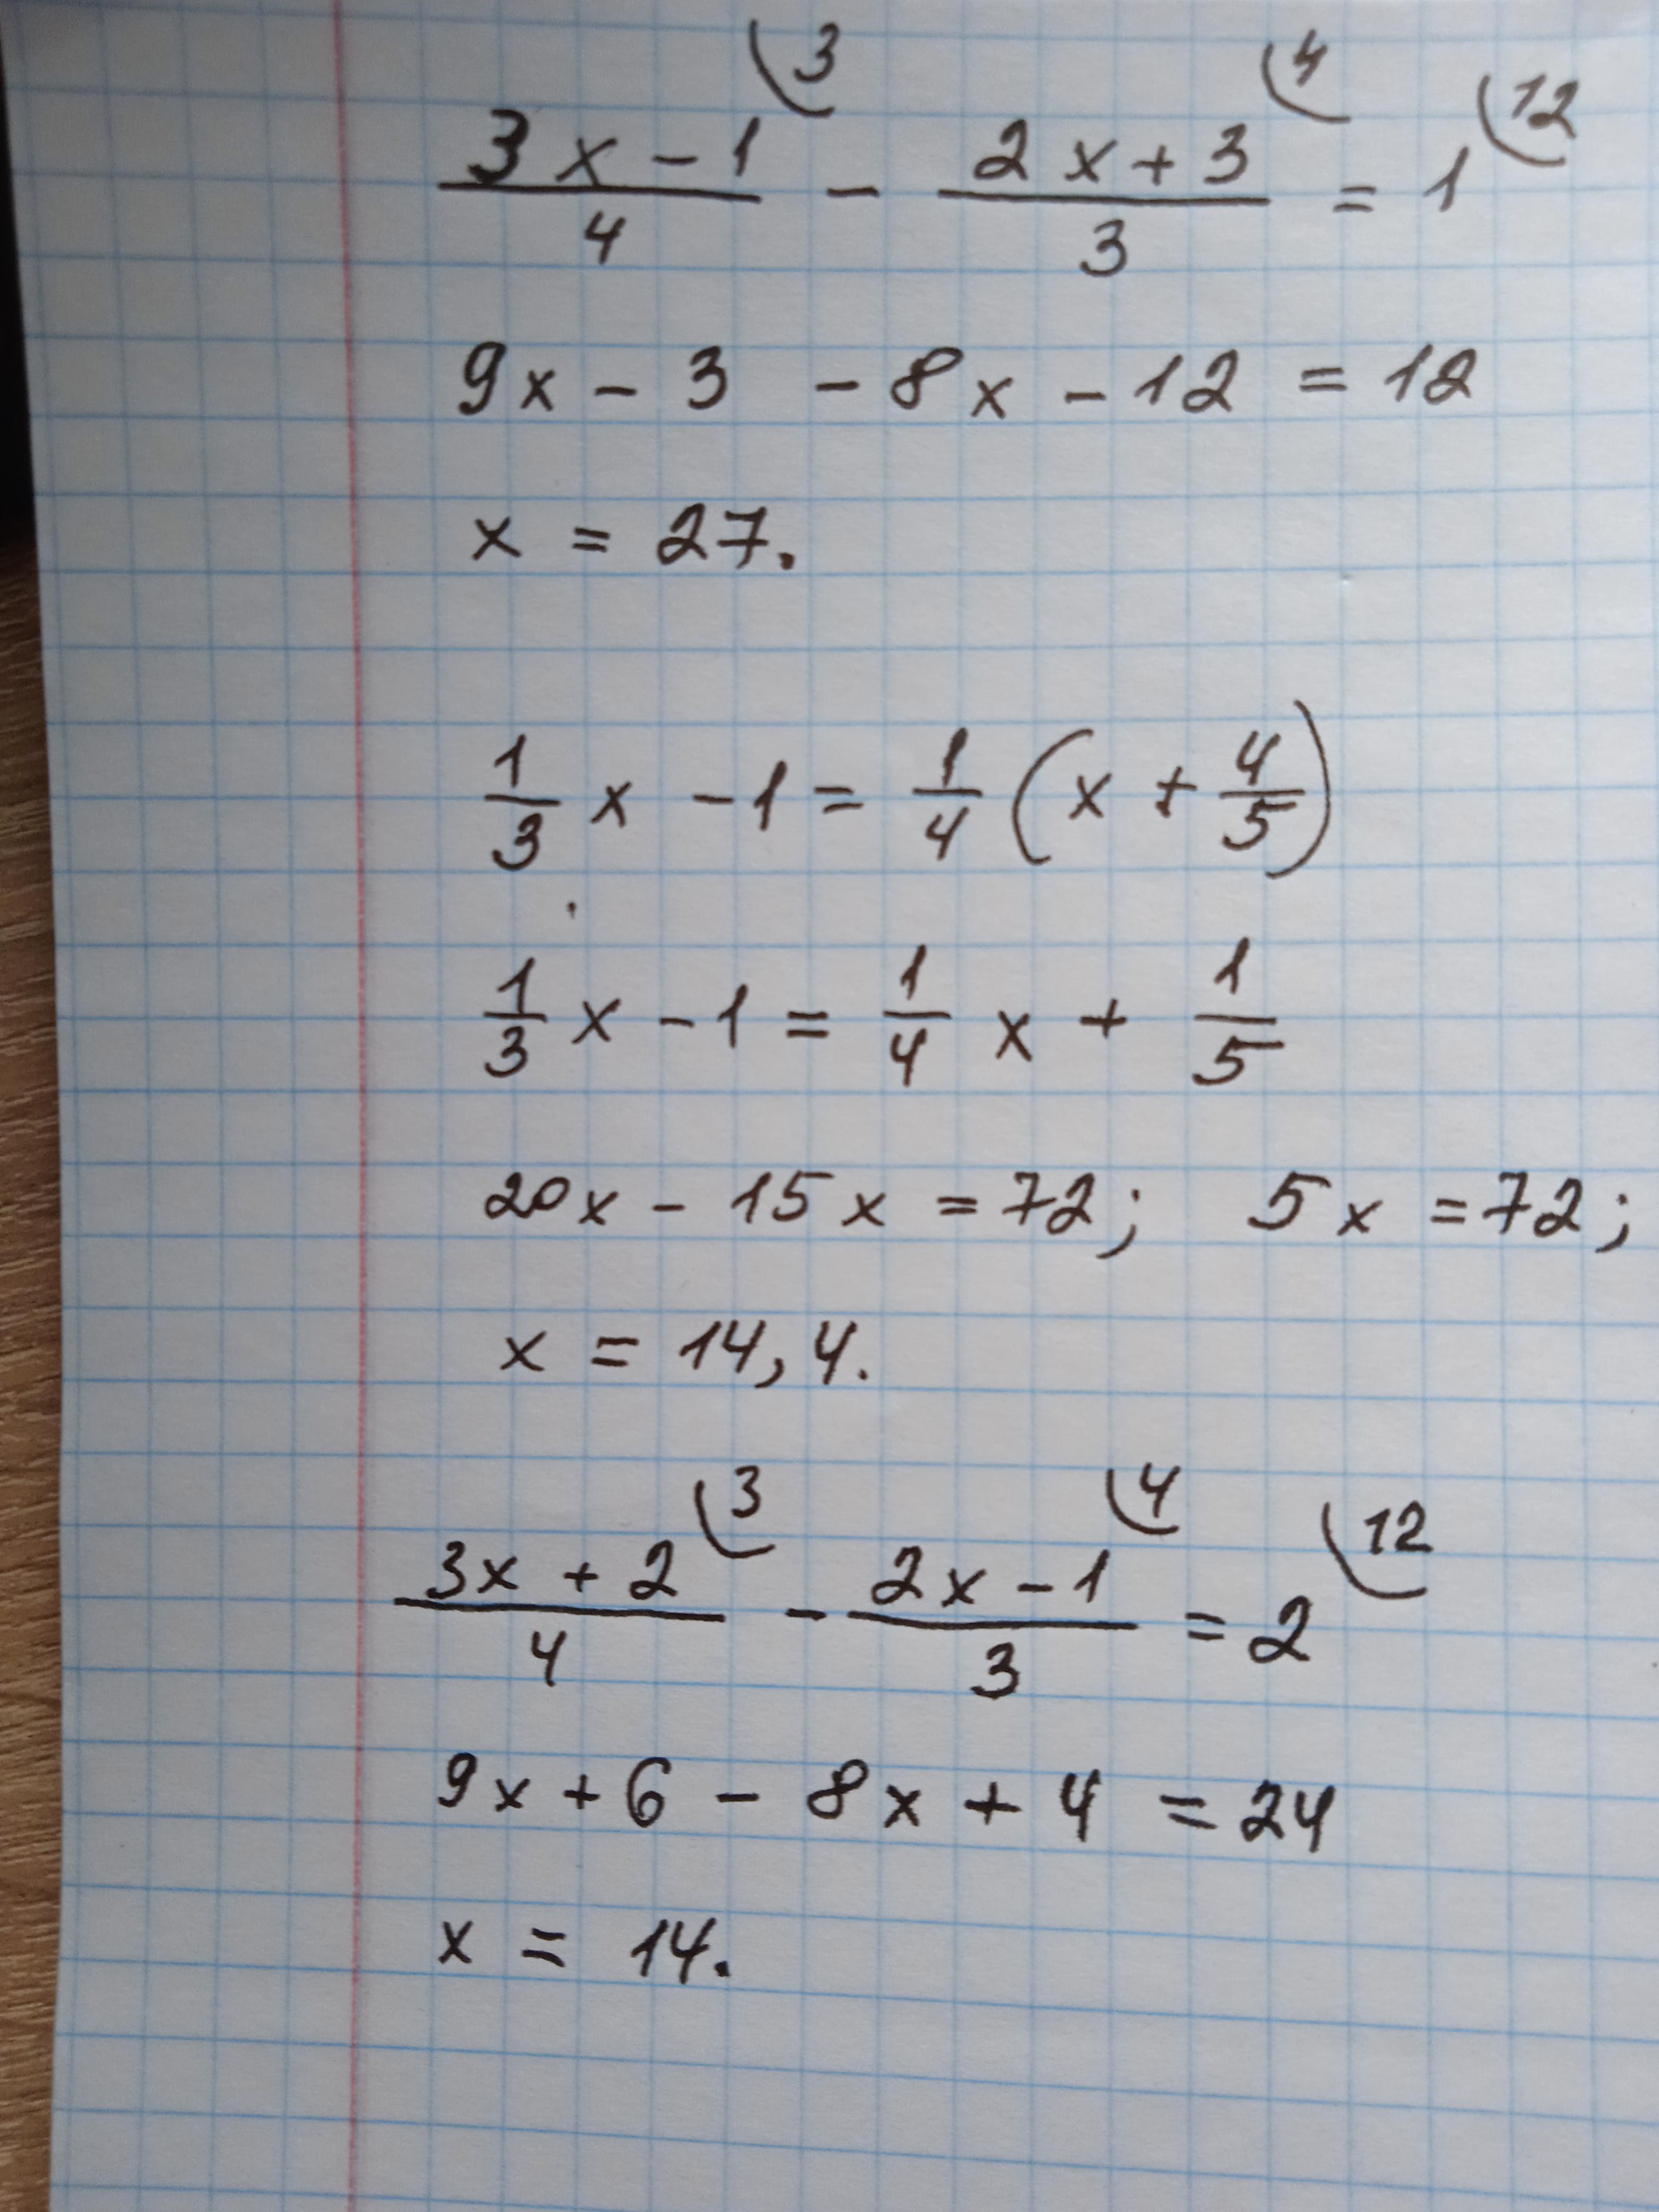 (3x - 1)/4 ⁽³ - (2x + 3)/3 ⁽⁴ = 1 ⁽¹²
9x - 3 - 8x - 12 = 12
x = 27.
1/3 x - 1 = 1/4 (x + 4/5)
1/3 x - 1 = 1/4 x + 1/5
20x - 15x = 72; 5x = 72;
x = 14,4.
(3x + 2)/4 ⁽³ - (2x - 1)/3 ⁽⁴ = 2 ⁽¹²
9x + 6 - 8x + 4 = 24
x = 14.